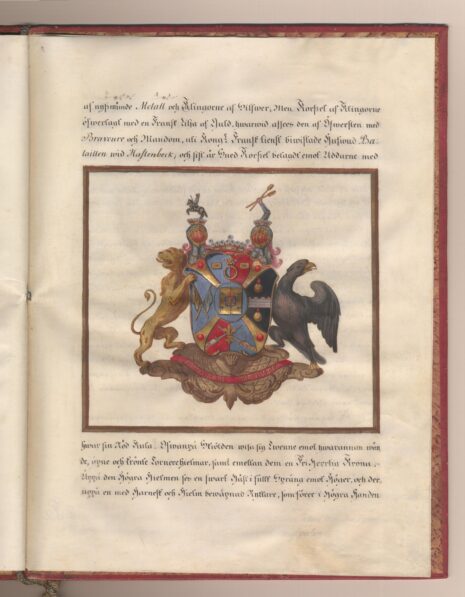 af nyßnämde Metall och Klingorne af Silfwer; Men Korßet af Klingorne
öfwerlagt med en Fransk Lilja af Guld, hwarwid afsees den af Öfwersten med
Bravoure och Mandom, uti Kongl. Fransk tienst biwistade Hufwud Ba-
taillen wid Hastenbeck, och sist är Swed Korßet belagdt emot Uddarne med
hwar sin Röd Kula. Ofwanpå Skiölden wisa sig Twenne emot hwarannan wän
de, öpne och krönte Tornerehielmar, samt emellan dem en Fri Herrlig Krona.
Uppå den Högra Hielmen ser en swart Häst i fullt Språng emot Höger, och der
uppå en med Harnesk och Hielm bewäpnad Ryttare, som förer i Högra Handen